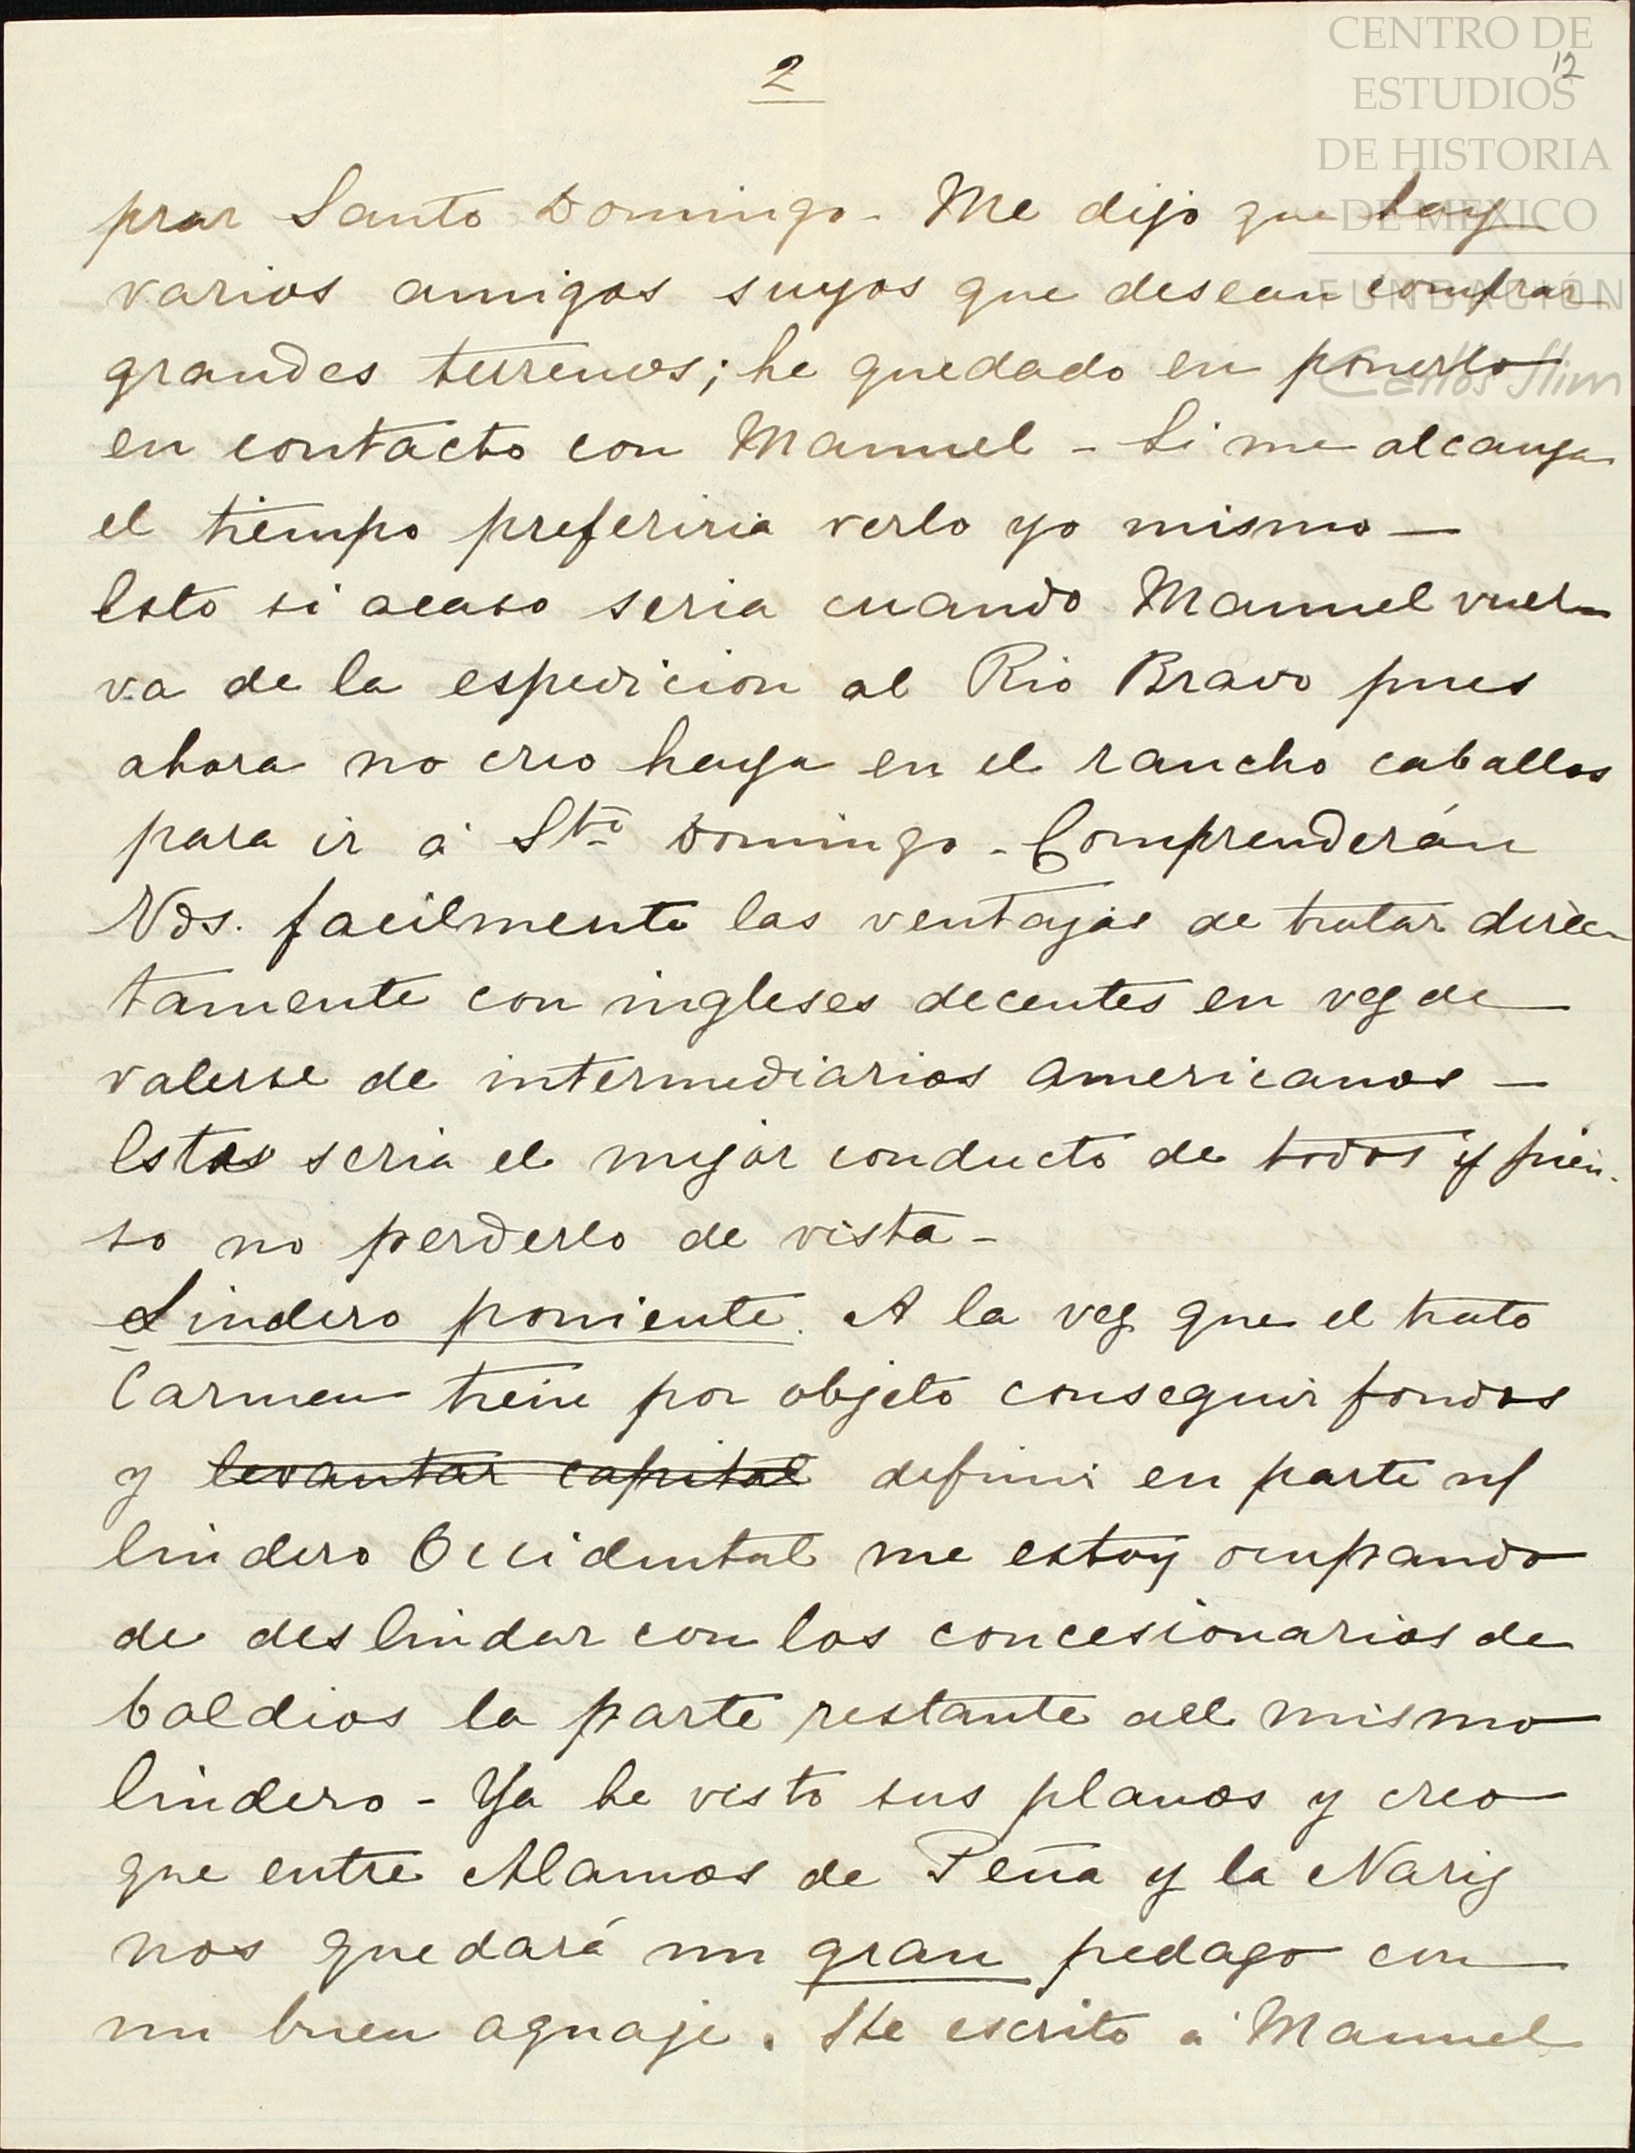 CENTRO DE
ESTUDIOS
DE HISTORIA
DE MEXICO
FUNDACIÓN
Carlos Slim
12
2
prar Santo Domingo - Me dijo que hay
varios amigos suyos que desean comprar
grandes terrenos; he quedado en ponerlo
en contacto con Manuel - Si me alcanza
el tiempo preferiria verlo yo mismo -
Esto si acaso seria cuando Manuel vuel-
va de la espedicion al Rio Bravo pues
ahora no creo haya en el rancho caballos
para ir á Sto Domingo - Comprenderán
Vds. facilmente las ventajas de tratar direc-
tamente con ingleses decentes en vez de
valerse de intermediarios americanos -
Este seria el mejor conducto de todos y pien-
so no perderlo de vista -
Lindero poniente. A la vez que el trato
Carmen tiene por objeto conseguir fondos
y levantar capital definir en parte n/
lindero Occidental me estoy ocupando
de deslindar con los concesionarios de
baldios la parte restante del mismo
lindero - Ya he visto sus planos y creo
que entre Alamos de Peña y la Nariz
nos quedará un gran pedazo con
un buen aguaje. He escrito á Manuel